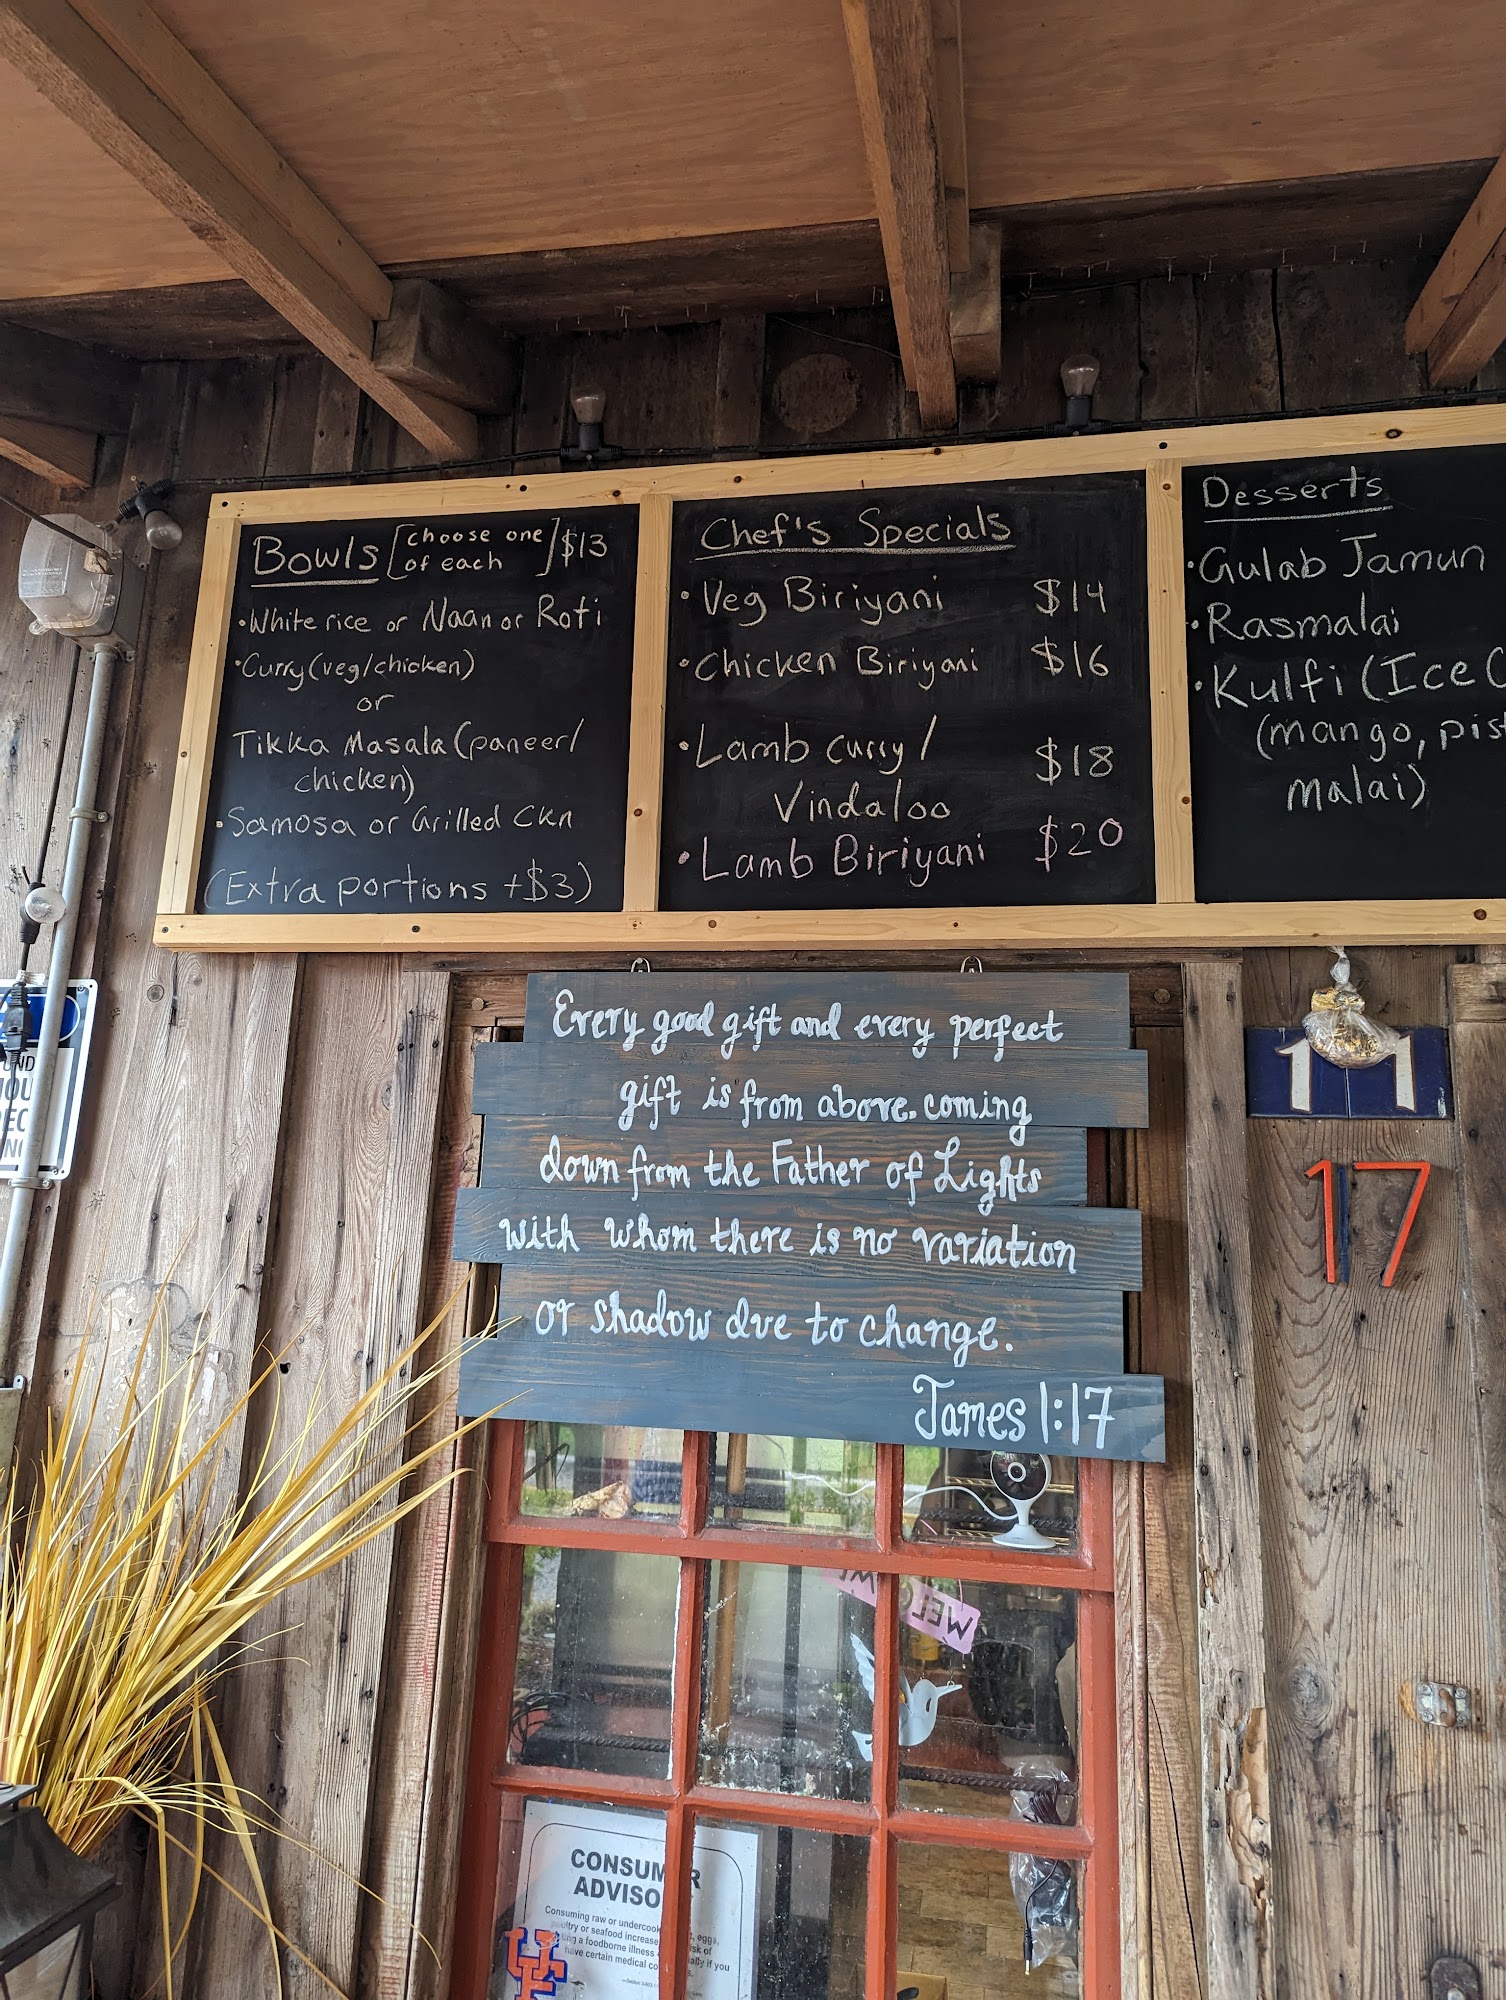 Bowls [choose one of each] $13
• White rice or Naan or Roti
• Curry (veg/chicken)
or
Tikka Masala (paneer/
chicken)
• Samosa or Grilled Ckn
(Extra portions +$3)
Chef's Specials
• Veg Biriyani $14
• Chicken Biriyani $16
• Lamb curry/
Vindaloo $18
• Lamb Biriyani $20
Desserts
• Gulab Jamun
• Rasmalai
• Kulfi (Ice
(mango,
malai)
Every good gift and every perfect
gift is from above. coming
down from the Father of Lights
with whom there is no variation
or shadow due to change.
James 1:17
17
WELCOME
CONSUMER
ADVISO
Consuming raw or undercook eggs,
poultry or seafood increase risk of
a foodborne illness if you
have certain medical
UF